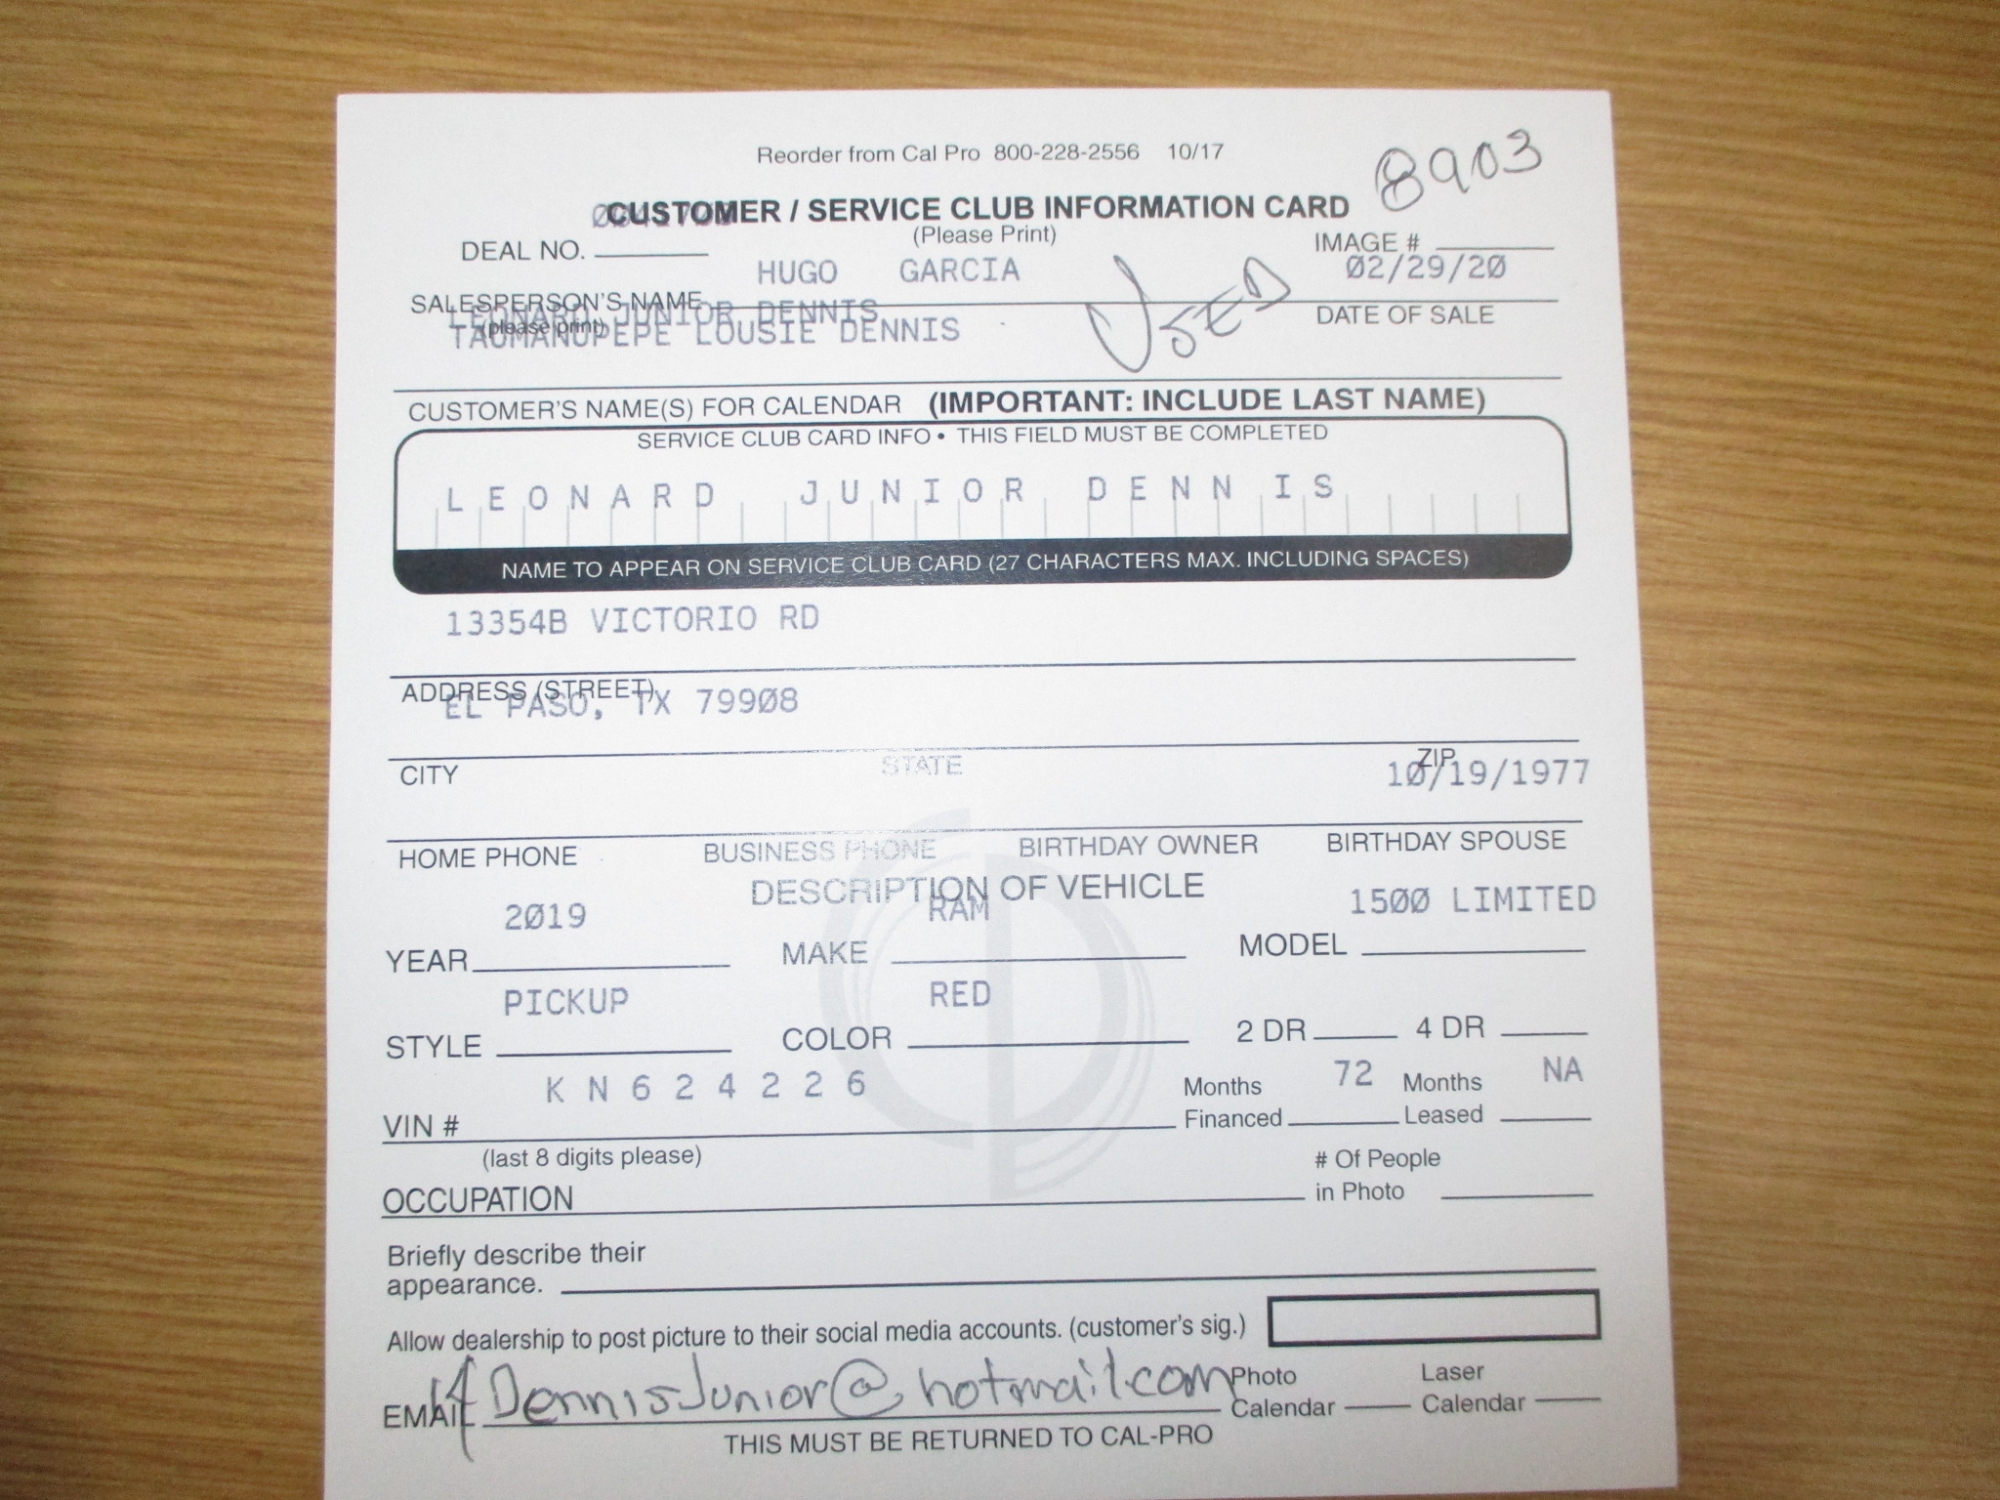 Reorder from Cal Pro 800-228-2556 10/17
8903
CUSTOMER / SERVICE CLUB INFORMATION CARD
(Please Print)
DEAL NO.
IMAGE #
HUGO GARCIA
02/29/20
SALESPERSON'S NAME
(please print)
USED
DATE OF SALE
LEONARD JUNIOR DENNIS
TAUMANUPEPE LOUSIE DENNIS
CUSTOMER'S NAME(S) FOR CALENDAR (IMPORTANT: INCLUDE LAST NAME)
SERVICE CLUB CARD INFO • THIS FIELD MUST BE COMPLETED
LEONARD JUNIOR DENNIS
NAME TO APPEAR ON SERVICE CLUB CARD (27 CHARACTERS MAX. INCLUDING SPACES)
13354B VICTORIO RD
ADDRESS (STREET)
EL PASO, TX 79908
CITY STATE ZIP
10/19/1977
HOME PHONE BUSINESS PHONE BIRTHDAY OWNER BIRTHDAY SPOUSE
DESCRIPTION OF VEHICLE
2019 RAM 1500 LIMITED
YEAR MAKE MODEL
PICKUP RED
STYLE COLOR 2 DR 4 DR
KN624226
VIN #
(last 8 digits please)
Months Financed 72 Months Leased NA
OCCUPATION
# Of People
in Photo
Briefly describe their
appearance.
Allow dealership to post picture to their social media accounts. (customer's sig.)
EMAIL DennisJunior@hotmail.com
Photo Calendar Laser Calendar
THIS MUST BE RETURNED TO CAL-PRO